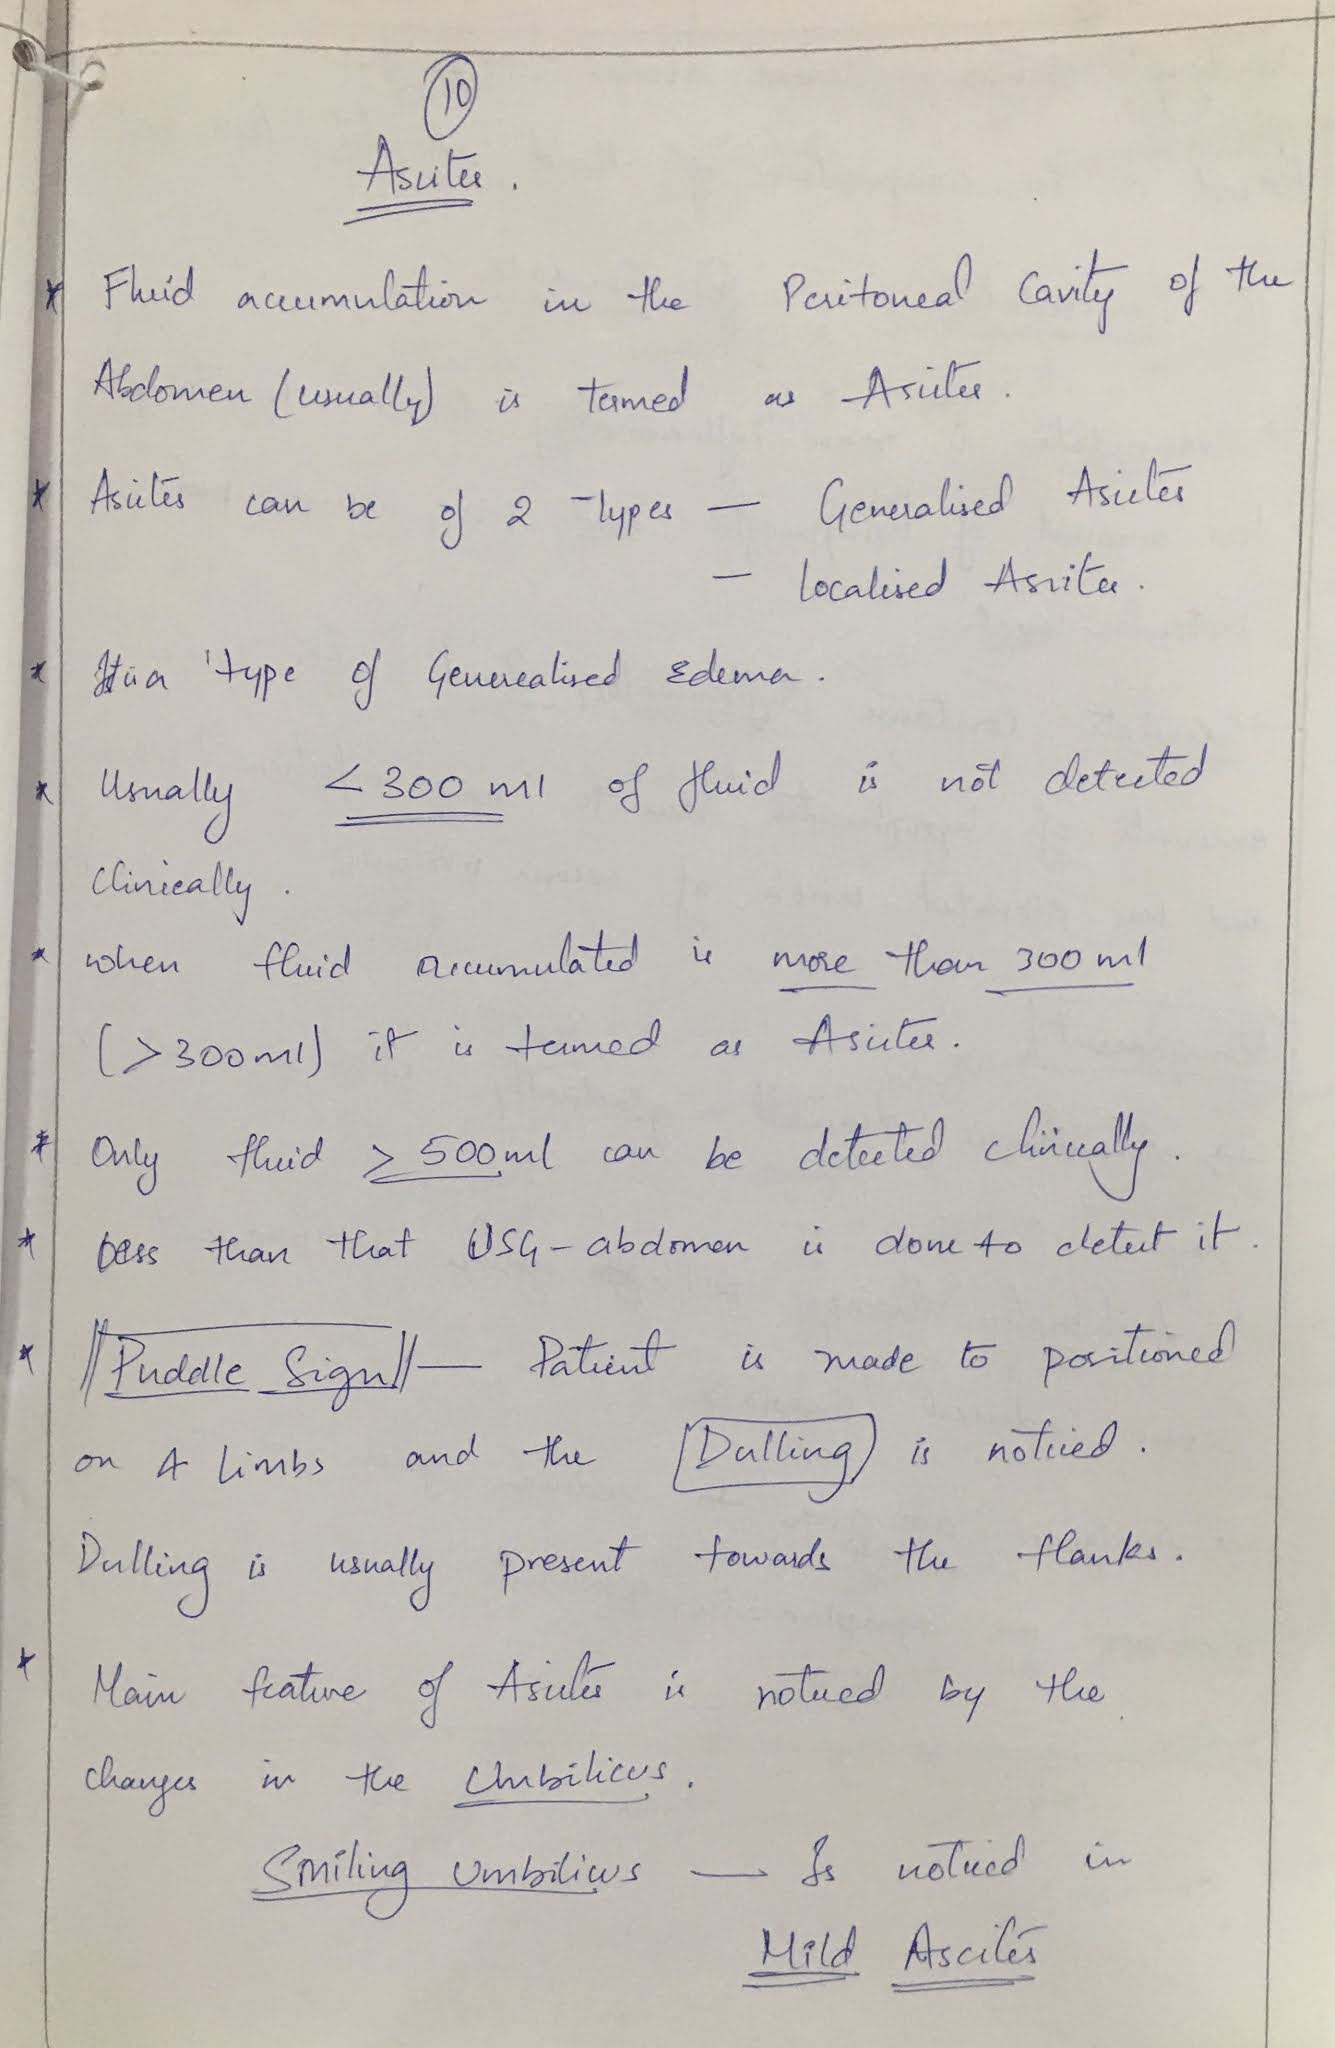 10
Ascites.
* Fluid accumulation in the Peritoneal Cavity of the
Abdomen (usually) is termed as Ascites.
* Ascites can be of 2 types — Generalised Ascites
— localised Ascites.
* It is a type of Generealised Edema.
* Usually < 300 ml of fluid is not detected
clinically.
* when fluid accumulated is more than 300 ml
(>300ml) it is termed as Ascites.
* Only fluid > 500ml can be detected clinically.
* Less than that USG - abdomen is done to detect it.
* ||Puddle Sign|| — Patient is made to positioned
on 4 limbs and the [Dulling] is noticed.
Dulling is usually present towards the flanks.
* Main feature of Ascites is noticed by the
changes in the Umbilicus.
Smiling Umbilicus — Is noticed in
Mild Ascites